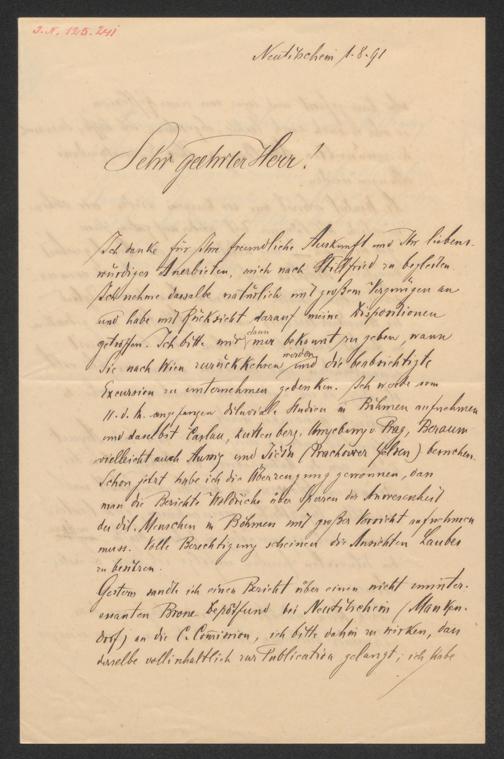 J.N. 125.241
Neutitschein 1.8.91
Sehr geehrter Herr!
Ich danke für Ihre freundliche Auskunft und Ihr liebens-
würdiges Anerbieten, mich nach Stillfried zu begleiten.
Ich nehme dasselbe natürlich mit großem Vergnügen an
und habe mit Rücksicht darauf meine Dispositionen
getroffen. Ich bitte mir dann nur bekannt zu geben, wann
Sie nach Wien zurückkehren werden und die beabsichtigte
Excursion zu unternehmen gedenken. Ich werde vom
11. d. M. angefangen diluviale Studien in Böhmen aufnehmen
und daselbst Caslau, Kuttenberg, Umgebung v. Prag, Beraun
vielleicht auch Aussig und Jičin (Prachower Felsen) besuchen.
Schon jetzt habe ich die Überzeugung gewonnen, dass
man die Berichte Woldřichs über Spuren der Anwesenheit
des dil. Menschen in Böhmen mit großer Vorsicht aufnehmen
muss. Volle Berechtigung scheinen die Ansichten Laubes
zu besitzen.
Gestern sandte ich einen Bericht über einen nicht uninter-
essanten Bronzedepôtfund bei Neutitschein (Manken-
dorf) an die C. Comission, ich bitte dahin zu wirken, dass
derselbe vollinhaltlich zur Publication gelangt; ich habe